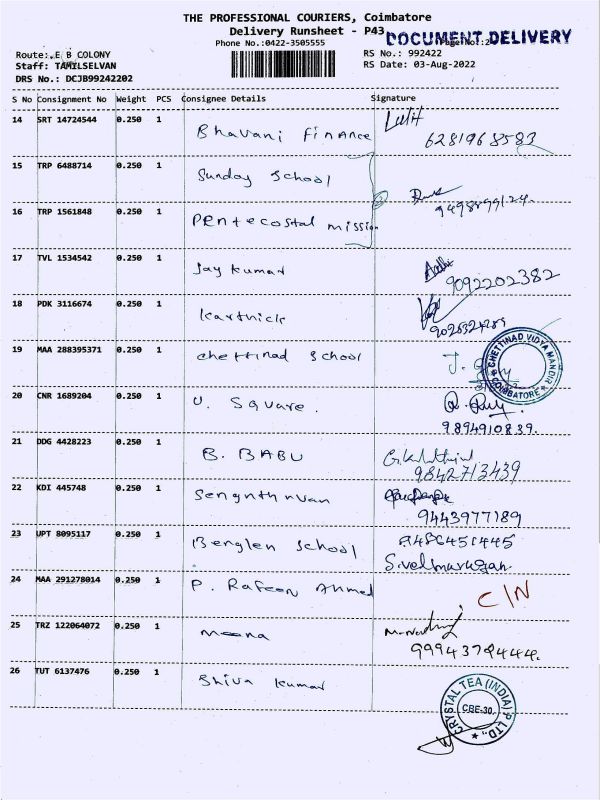 THE PROFESSIONAL COURIERS, Coimbatore
Delivery Runsheet - P43
DOCUMENT DELIVERY
Phone No.:0422-3505555
Page No.:2
Route: E B COLONY
RS No.: 992422
Staff: TAMILSELVAN
RS Date: 03-Aug-2022
DRS No.: DCJB99242202
S No Consignment No Weight PCS Consignee Details Signature
14 SRT 14724544 0.250 1 Bhavani Finance
6281968583
15 TRP 6488714 0.250 1 Sunday School
16 TRP 1561848 0.250 1 Pentecostal mission
17 TVL 1534542 0.250 1 Jay kumar
9092202382
18 PDK 3116674 0.250 1 Karthick
19 MAA 288395371 0.250 1 chettinad School
CHETTINAD VIDYA MANDIR
COIMBATORE
20 CNR 1689204 0.250 1 U. Square.
9894910839.
21 DDG 4428223 0.250 1 B. BABU
9842713439
22 KDI 445748 0.250 1
9443977189
23 UPT 8095117 0.250 1 Benglen School
9486451445
S.velmurugan.
24 MAA 291278014 0.250 1 P. Rafeen Ahmed
C/N
25 TRZ 122064072 0.250 1 meena
26 TUT 6137476 0.250 1 Shiva kumar
CRYSTAL TEA (INDIA) P LTD.,
CBE-30.